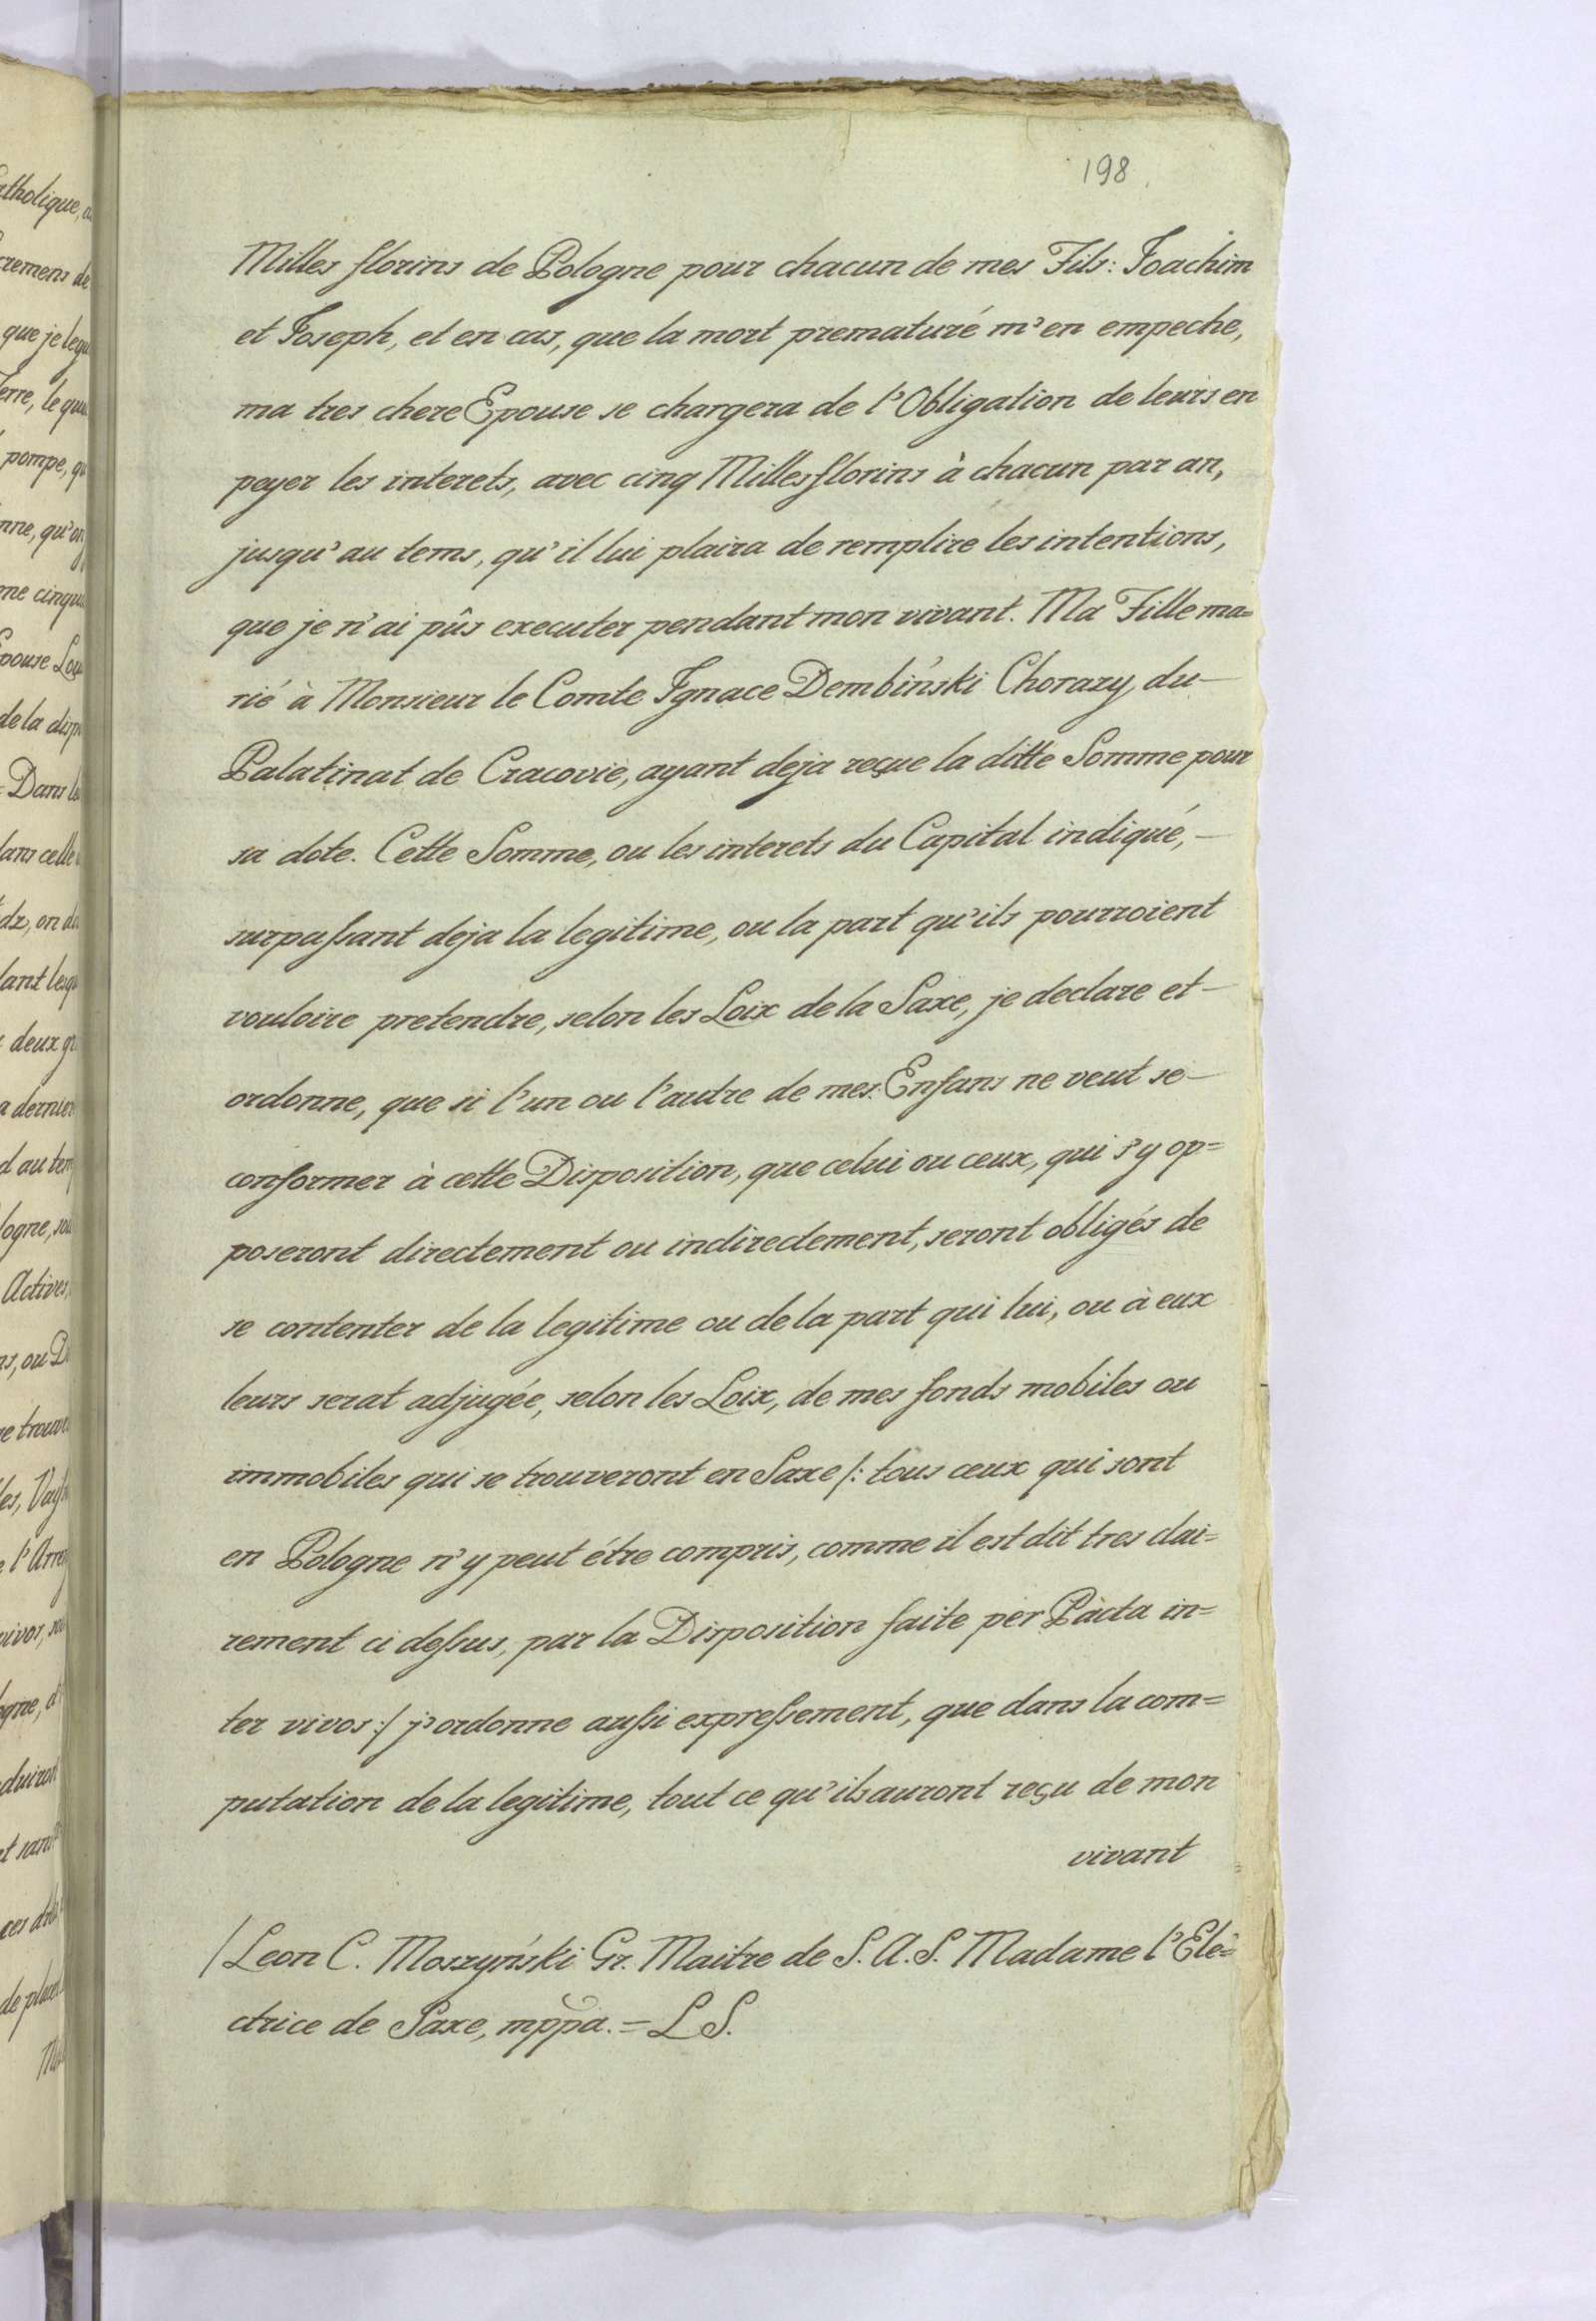 198.
Milles florins de Pologne pour chacun de mes Fils: Joachim
et Joseph, et en cas, que la mort prematuré m'en empeche,
ma tres chere Epouse se chargera de l'Obligation de leurs en
peyer les interets, avec cinq Milles florins à chacun par an,
jusqu'au tems, qu'il lui plaira de remplire les intentions,
que je n'ai pûs executer pendant mon vivant. Ma Fille ma=
rié à Monsieur le Comte Ignace Dembinski Chorazy du
Palatinat de Cracovie, ayant deja reçue la ditte Somme pour
sa dote. Cette Somme, ou les interets du Capital indiqué,
surpaſsant deja la legitime, ou la part qu'ils pourroient
vouloire pretendre, selon les Loix de la Saxe, je declare et
ordonne, que si l'un ou l'autre de mes Enfans ne veut se
conformer à cette Disposition, que celui ou ceux, qui s'y op=
poseront directement ou indirectement, seront obligés de
se contenter de la legitime ou de la part qui lui, ou à eux
leurs serat adjugée, selon les Loix, de mes fonds mobiles ou
immobiles qui se trouveront en Saxe /: tous ceux qui sont
en Pologne n'y peut étre compris, comme il est dit tres clai=
rement ci deſsus, par la Disposition faite per Pacta in=
ter vivos :/ j'ordonne auſsi expreſsement, que dans la com=
putation de la legitime, tout ce qu'ils auront reçu de mon
vivant
/Leon C. Moszyński Gr. Maitre de S. A. S. Madame l'Ele=
ctrice de Saxe, mppa. = L S.